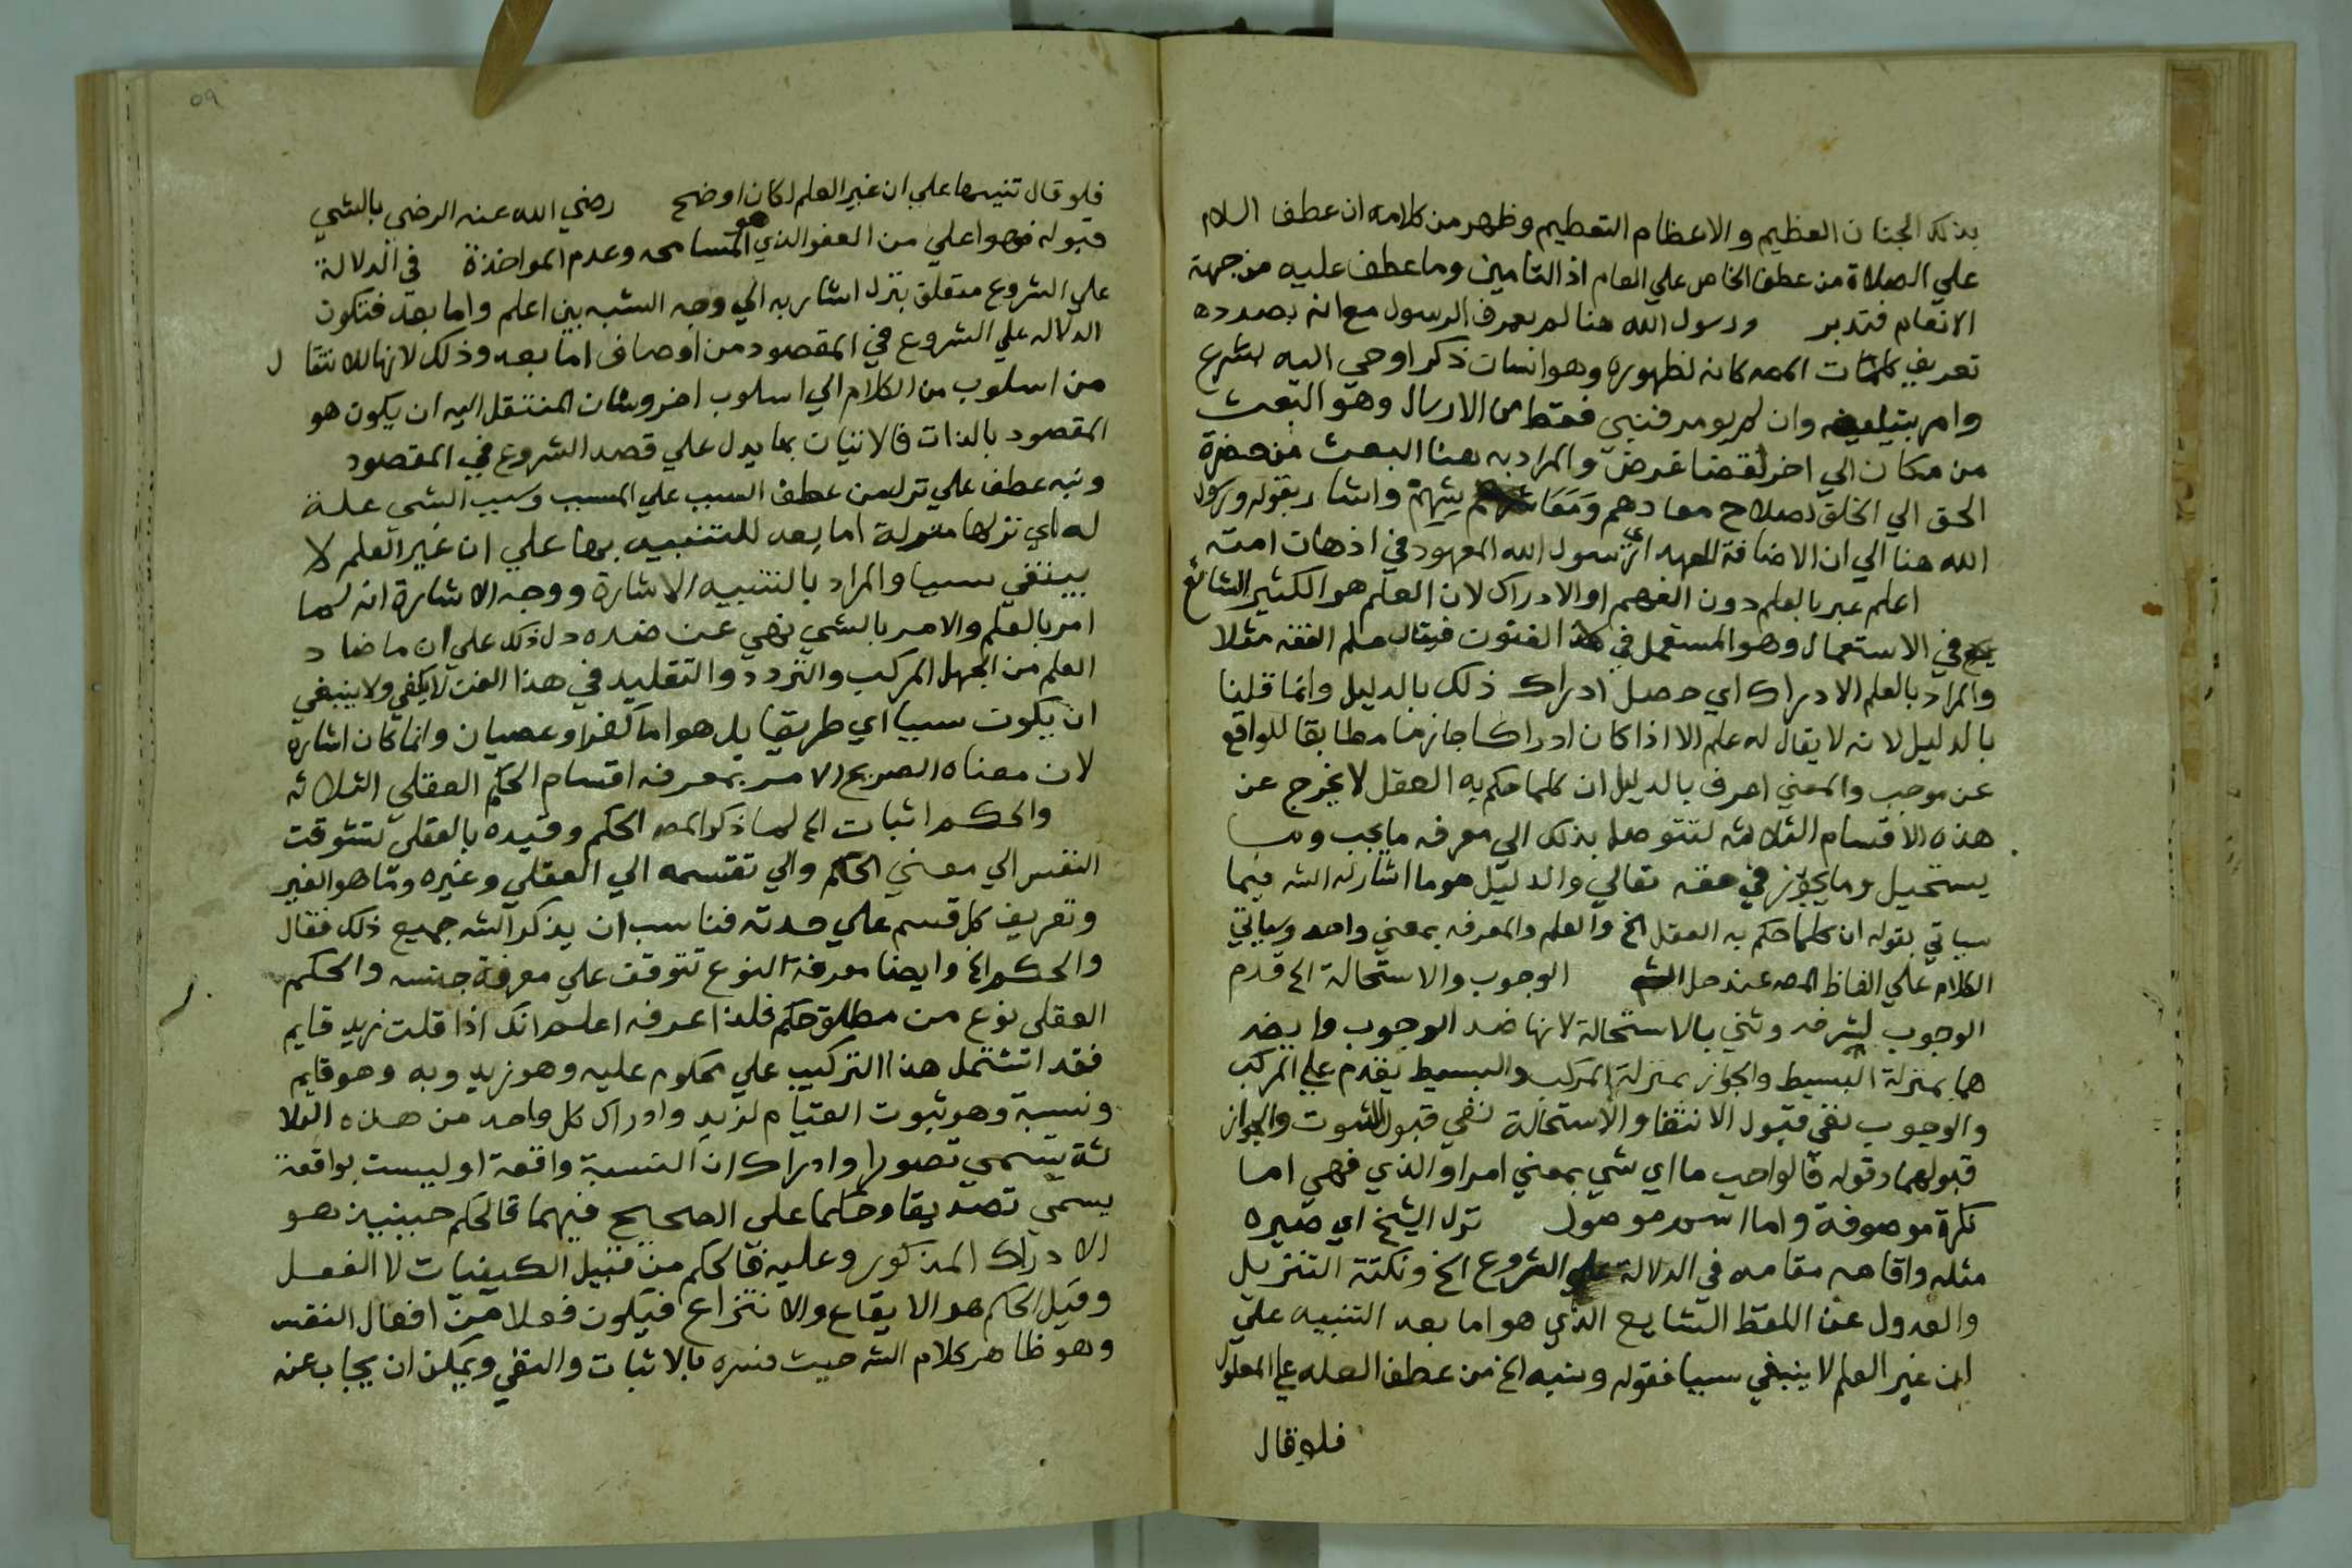 بذلك الجنان العظيم والاعظام التعظيم وظهر من كلامه ان عطف السلام
علي الصلاة من عطف الخاص علي العام اذ التامين وما عطف عليه من جهة
الانعام فتدبر ورسول الله هنا لم يعرف الرسول مع انه بصدده
تعريف كلمات المص كانه لظهوره وهو انسان ذكر اوحي اليه بشرع
وامر بتبليغه وان لم يومر فنبي فقط من الارسال وهو البعث
من مكان الي اخر لقضا غرض والمراد به هنا البعث من حضرة
الحق الي الخلق لصلاح معادهم ومعاشهم واشار بقوله ورسول
الله هنا الي ان الاضافة للعهد اي رسول الله المعهود في اذهان امته
اعلم عبر بالعلم دون الفهم او الادراك لان العلم هو الكثير الشائع
في الاستعمال وهو المستعمل في الفنون فيقال علم الفقه مثلا
والمراد بالعلم الادراك اي حصل ادراك ذلك بالدليل وانما قلنا
بالدليل لانه لا يقال له علم الا اذا كان ادراكا جازما مطابقا للواقع
عن موجب والمعني اعرف بالدليل ان كلما حكم به العقل لا يخرج عن
هذه الاقسام الثلاثه لتتوصل بذلك الي معرفه ما يجب وما
يستحيل وما يجوز في حقه تعالي والدليل هو ما اشار له الشه فيما
سياتي بقوله ان كلما حكم به العقل الخ والعلم والمعرفه بمعني واحد وسياتي
الكلام علي الفاظ المص عند حل الشه الوجوب والاستحالة الخ قدم
الوجوب لشرفه وثني بالاستحالة لانها ضد الوجوب وايضا
هما بمنزلة البسيط والجواز بمنزلة المركب والبسيط يقدم علي المركب
والوجوب نفي قبول الانتفا والاستحالة نفي قبول الثبوت والجواز
قبولهما وقوله فالواجب ما اي شي بمعني امر او الذي فهي اما
نكرة موصوفة واما اسم موصول نزل الشيخ اي صيره
مثله واقامه مقامه في الدلالة علي الشروع الخ ونكتة التنزيل
والعدول عن اللفظ الشايع الذي هو اما بعد التنبيه علي
ان غير العلم لا ينبغي سببا فقوله ونبه الخ من عطف العله علي المعلول
فلو قال
فلو قال تنبيها علي ان غير العلم لكان اوضح رضي الله عنه الرضي بالشي
قبوله فهو اعلي من العفو الذي هو المسامحه وعدم المواخذة في الدلالة
علي الشروع متعلق بنزل اشار به الي وجه الشبه بين اعلم واما بعد فتكون
الدلاله علي الشروع في المقصود من اوصاف اما بعد وذلك لانها للانتقال
من اسلوب من الكلام الي اسلوب اخر وشان المنتقل اليه ان يكون هو
المقصود بالذات فالاتيان بما يدل علي قصد الشروع في المقصود
ونبه عطف علي نزل من عطف السبب علي المسبب وسبب الشي علة
له اي نزلها منزلة اما بعد للتنبيه بها علي ان غير العلم لا
ينبغي سببا والمراد بالتنبيه الاشارة ووجه الاشارة انه لما
امر بالعلم والامر بالشي نهي عن ضده دل ذلك علي ان ما ضاد
العلم من الجهل المركب والتردد والتقليد في هذا الفن لا يكفي ولا ينبغي
ان يكون سببا اي طريقا بل هو اما كفر او عصيان وانما كان اشارة
لان معناه الصريح الامر بمعرفه اقسام الحكم العقلي الثلاثه
والحكم اثبات الخ لما ذكر المص الحكم وقيده بالعقلي تشوقت
النفس الي معني الحكم والي تقسمه الي العقلي وغيره وما هو الغير
وتعريف كل قسم علي حدته فناسب ان يذكر الشه جميع ذلك فقال
والحكم الخ وايضا معرفة النوع تتوقف علي معرفة جنسه والحكم
العقلي نوع من مطلق حكم فلذا عرفه اعلم انك اذا قلت زيد قايم
فقد اشتمل هذا التركيب علي محكوم عليه وهو زيد وبه وهو قايم
ونسبة وهو ثبوت القيام لزيد وادراك كل واحد من هذه الثلا
ثة يسمي تصورا وادراك ان النسبة واقعة او ليست بواقعة
يسمي تصديقا وحكما علي الصحيح فيهما فالحكم حينيذ هو
الادراك المذكور وعليه فالحكم من قبيل الكيفيات لا الفعل
وقيل الحكم هو الايقاع والانتزاع فيكون فعلا من افعال النفس
وهو ظاهر كلام الشه حيث فسره بالاثبات والنفي ويمكن ان يجاب عنه